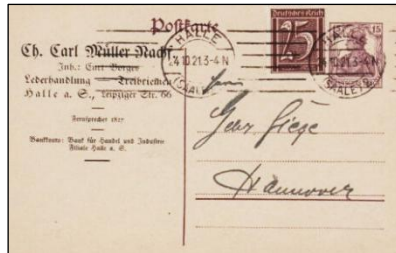 Postkarte
Ch. Carl Müller Nachf
Inh.: Curt Berger
Lederhandlung — Treibriemen
Halle a. S., Leipziger Str. 66
Fernsprecher 1827
Bankkonto: Bank für Handel und Industrie
Filiale Halle a. S.
Deutsches Reich
25
15
HALLE
4.10.21.3-4 N
(SAALE)
HALLE
4.10.21.3-4 N
(SAALE)
Hannover